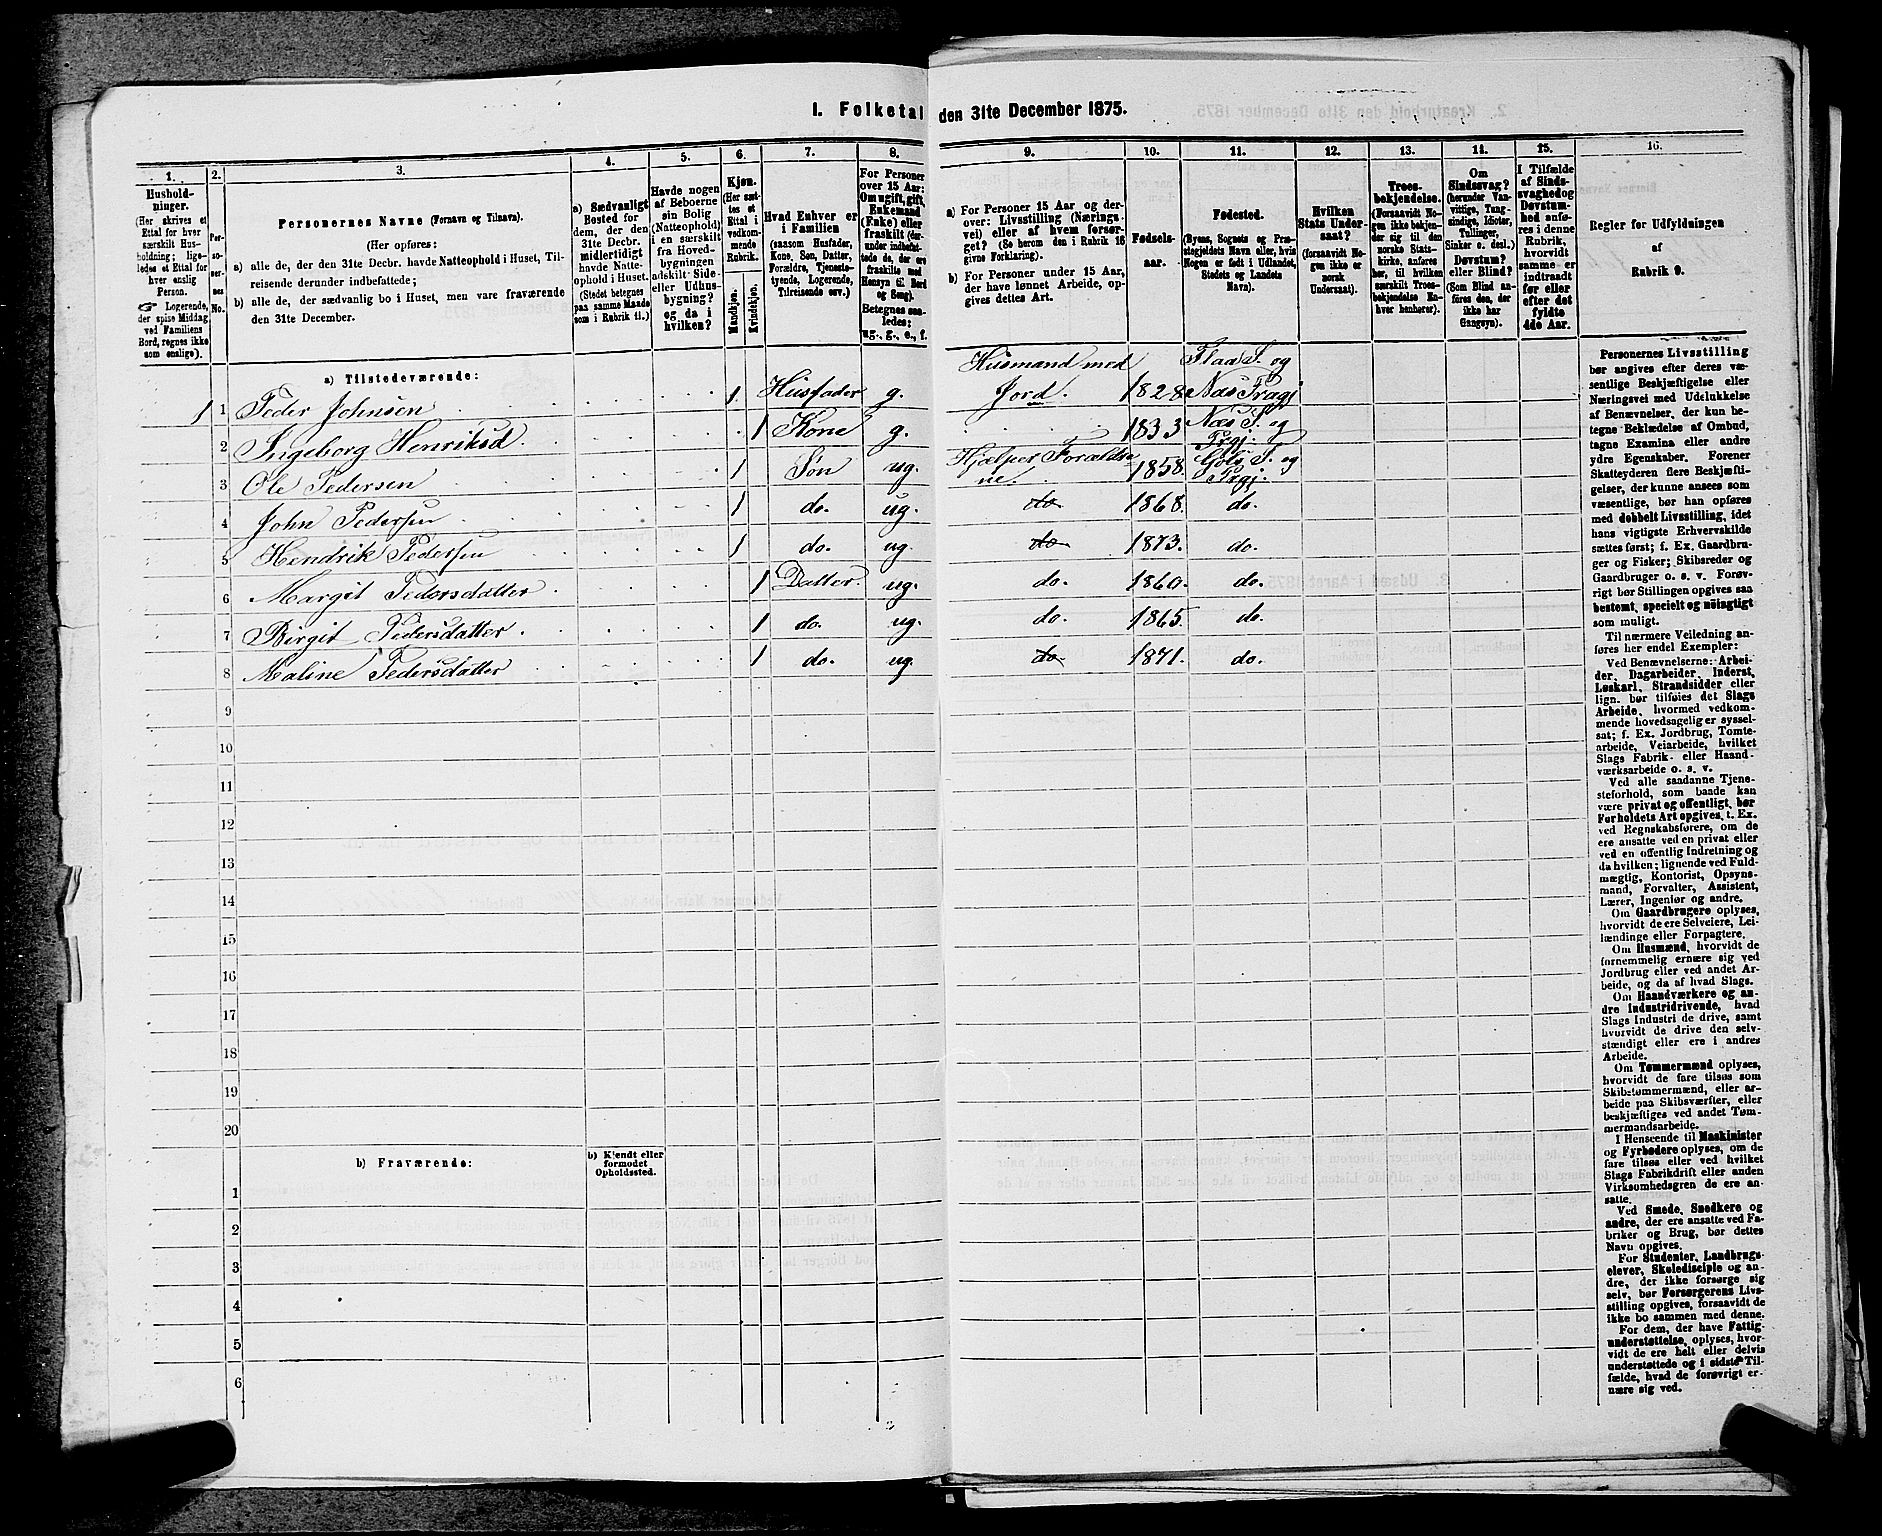 I. Folketal den 31te December 1875.
1.
2.
3.
4.
5.
6.
7.
8.
9.
10.
11.
12.
13.
14.
15.
16.
Hushold-
ninger.
(Her skrives et
Ettal for hver
særskilt Hus-
holdning; lige-
ledes et Ettal for
hver enslig
Person.
Logerende,
der spise Middag
ved Familiens
Bord, regnes ikke
som enslige).
Per-
so-
ner-
nes
No.
Personernes Navne (Fornavn og Tilnavn).
(Her opføres:
a) alle de, der den 31te Decbr. havde Natteophold i Huset, Til-
reisende derunder indbefattede;
b) alle de, der sædvanlig bo i Huset, men vare fraværende
den 31te December.
a) Sædvanligt
Bosted for
dem, der den
31te Decbr.
midlertidigt
havde Natte-
ophold i Huset.
(Stedet betegnes
paa samme Maade
som i Rubrik 11.)
Havde nogen
af Beboerne
sin Bolig
(Natteophold)
i en særskilt
fra Hoved-
bygningen
adskilt Side-
eller Udhus-
bygning?
og da i
hvilken?
Kjøn.
(Her sæt-
tes et
Ettal i
vedkom-
mende
Rubrik.
Mandkjøn.
Kvindekjøn.
Hvad Enhver er
i Familien
(saasom Husfader,
Kone, Søn, Datter,
Forældre, Tjeneste-
tyende, Logerende,
Tilreisende osv.)
For Personer
over 15 Aar:
Om ugift, gift,
Enkemand
(Enke) eller
fraskilt (der-
under indbefat-
tede de, der ere
fraskilte med
Hensyn til Bord
og Seng).
Betegnes saa-
ledes:
ug., g., e., f.
a) For Personer 15 Aar og der-
over: Livsstilling (Nærings-
vei) eller af hvem forsør-
get? (Se herom den i Rubrik 16
givne Forklaring).
b) For Personer under 15 Aar,
der have lønnet Arbeide, op-
gives dettes Art.
Fødsels-
aar.
Fødested.
(Byens, Sognets og Præ-
stegjeldets Navn eller, hvis
Nogen er født i Udlandet,
Stedets og Landets
Navn).
Hvilken
Stats Under-
saat?
(forsaavidt No-
gen ikke er
norsk
Undersaat).
Troes-
bekjendelse.
(Forsaavidt No-
gen ikke bekjen-
der sig til den
norske Stats-
kirke, anføres
her, til hvilken
særskilt Troes-
bekjendelse En-
hver henhører).
Om
Sindssvag?
(herunder Van-
vittige, Tung-
sindige, Idioter,
Tullinger,
Sinker o. desl.)
Døvstum?
eller Blind?
(Som Blind an-
føres den, der
ikke har
Gangsyn).
I Tilfælde
af Sinds-
svaghed og
Døvstum-
hed anfø-
res i denne
Rubrik,
hvorvidt
samme er
indtraadt
før eller
efter det
fyldte
4de Aar.
Regler for Udfyldningen
af
Rubrik 9.
a) Tilstedeværende:
1 1 Peder Johnsen 1 Husfader g. Husmand med Jord. 1828 Flaa S. og Næs Prægj
2 Ingeborg Henriksd. 1 Kone g. 1833 Næs S. og Prgj.
3 Ole Pedersen 1 Søn ug. Hjælper Forældrene. 1858. Gols S. og Prgj.
4 John Pedersen 1 do. ug. do 1868. do.
5 Hendrik Pedersen 1 do. ug. do 1873. do.
6 Margit Pedersdatter 1 Datter ug. do. 1860. do.
7 Birgit Pedersdatter. 1 do. ug. do. 1865. do.
8 Maline Pedersdatter 1 do. ug. do 1871. do.
9
10
11
12
13
14
15
16
17
18
19
20
b) Fraværende:
b) Kjendt eller
formodet
Opholdssted.
1
2
3
4
5
6
Personernes Livsstilling
bør angives efter deres væ-
sentlige Beskjæftigelse eller
Næringsvei med Udelukkelse
af Benævnelser, der kun be-
tegne Beklædelse af Ombud,
tagne Examina eller andre
ydre Egenskaber. Forener
Skatteyderen flere Beskjæfti-
gelser, der kunne ansees som
væsentlige, bør han opføres
med dobbelt Livsstilling, idet
hans vigtigste Erhvervskilde
sættes først; f. Ex. Gaardbru-
ger og Fisker; Skibsreder og
Gaardbruger o. s. v. Forøv-
rigt bør Stillingen opgives saa
bestemt, specielt og nøiagtigt
som muligt.
Til nærmere Veiledning an-
føres her endel Exempler:
Ved Benævnelserne: Arbei-
der, Dagarbeider, Inderst,
Løskarl, Strandsidder eller
lign. bør tilføies det Slags
Arbeide, hvormed vedkom-
mende hovedsagelig er syssel-
sat; f. Ex. Jordbrug, Tomte-
arbeide, Veiarbeide, hvilket
Slags Fabrik- eller Haand-
værksarbeide o. s. v.
Ved alle saadanne Tjene-
steforhold, som baade kan
være privat og offentligt, bør
Forholdets Art opgives, t. Ex.
ved Regnskabsførere, om de
ere ansatte ved en privat eller
ved en offentlig Indretning og
da hvilken; lignende ved Fuld-
mægtig, Kontorist, Opsyns-
mand, Forvalter, Assistent,
Lærer, Ingeniør og andre.
Om Gaardbrugere oplyses,
hvorvidt de ere Selveiere, Lei-
lændinge eller Forpagtere.
Om Husmænd, hvorvidt de
fornemmelig ernære sig ved
Jordbrug eller ved andet Ar-
beide, og da af hvad Slags.
Om Haandværkere og an-
dre Industridrivende, hvad
Slags Industri de drive, samt
hvorvidt de drive den selv-
stændigt eller ere i andres
Arbeide.
Om Tømmermænd oplyses,
hvorvidt de fare tilsøs som
Skibstømmermænd, eller ar-
beide paa Skibsværfter, eller
beskjæftiges ved andet Tøm-
mermandsarbeide.
I Henseende til Maskinister
og Fyrbødere oplyses, om de
fare tilsøs eller ved hvilket
Slags Fabrikdrift eller anden
Virksomhedsgren de ere an-
satte.
Ved Smede, Snedkere og
andre, der ere ansatte ved Fa-
briker og Brug, bør dettes
Navn opgives.
For Studenter, Landbrugs-
elever, Skoledisciple og an-
dre, der ikke forsørge sig
selv, bør Forsørgerens Livs-
stilling opgives, forsaavidt de
ikke bo sammen med denne.
For dem, der have Fattig-
understøttelse, oplyses, hvor-
vidt de ere helt eller delvis
understøttede og i sidste Til-
fælde, hvad de forøvrigt er-
nære sig ved.